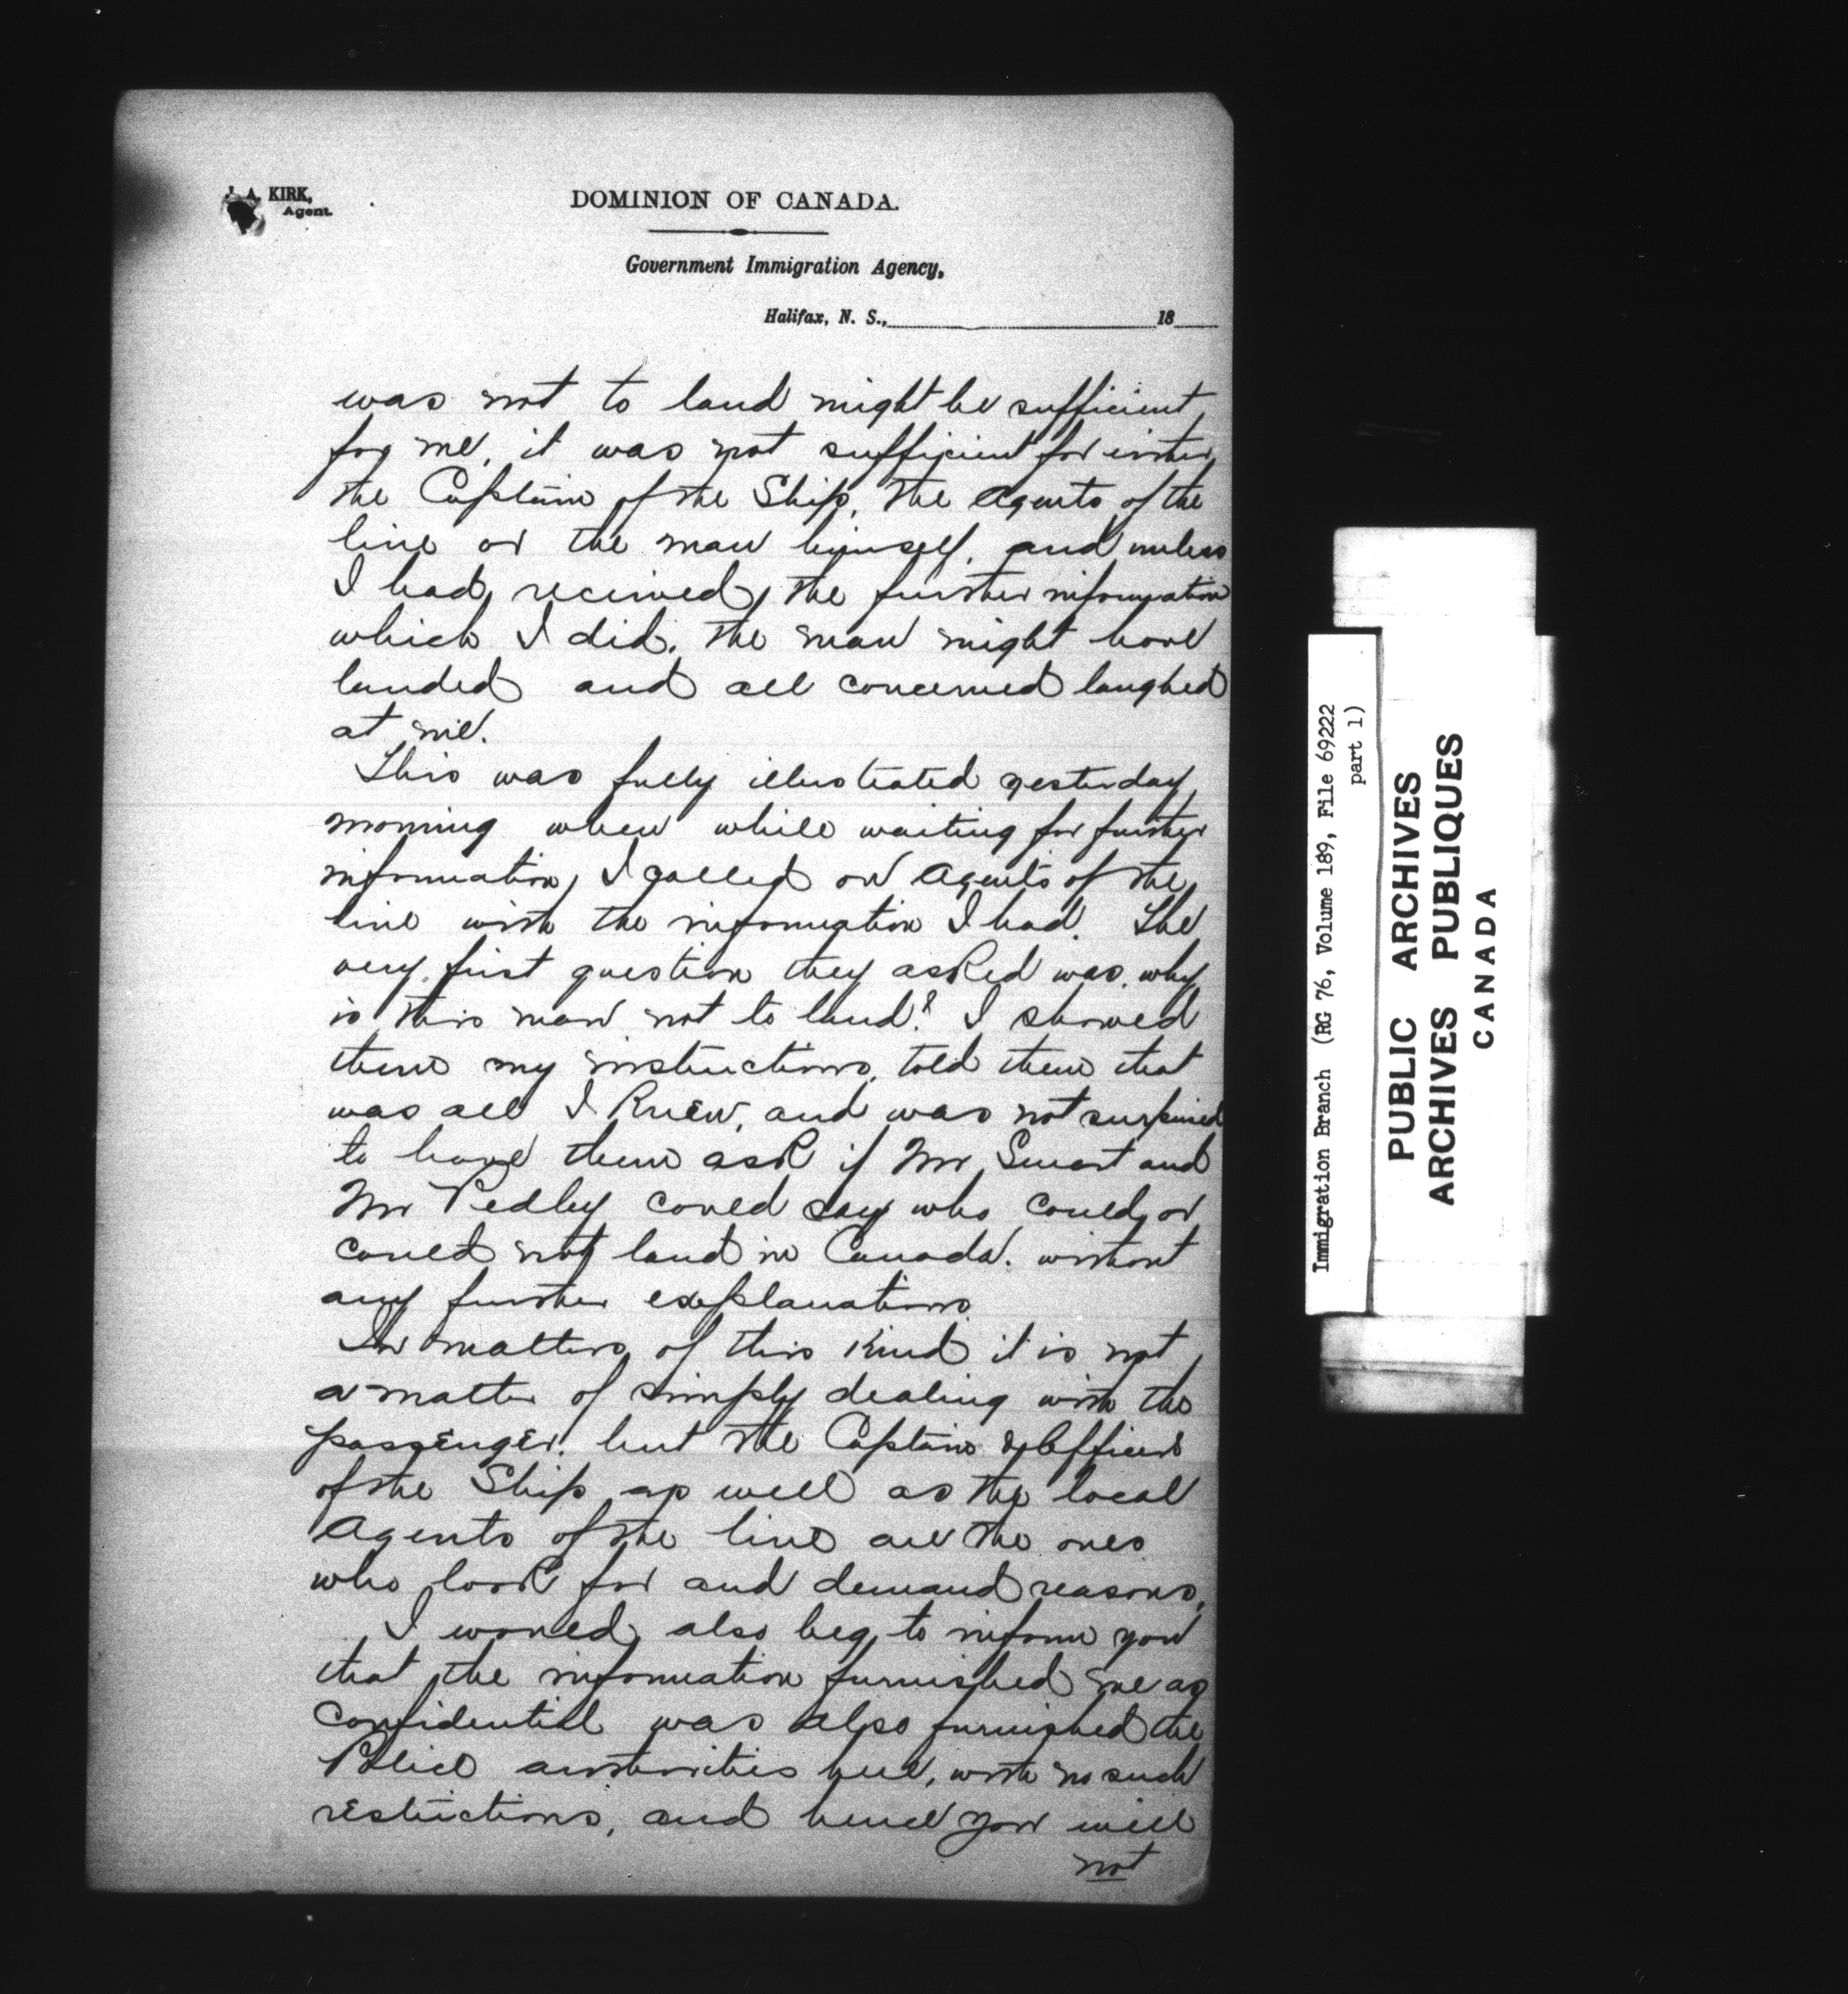 J. A. KIRK,
Agent.
DOMINION OF CANADA.
Government Immigration Agency,
Halifax, N. S., 18
was not to land might be sufficient
for me, it was not sufficient for either
the Captain of the Ship, the Agents of the
line or the man himself, and unless
I had received the further information
which I did, the man might have
landed and all concerned laughed
at me.
This was fully illustrated yesterday
morning when while waiting for further
information, I called on Agents of the
line with the information I had. The
very first question they asked was, why
is this man not to land? I showed
them my instructions, told them that
was all I knew, and was not surprised
to have them ask if Mr Smart and
Mr Pedley could say who could or
could not land in Canada, without
any further explanations
In matters of this kind it is not
a matter of simply dealing with the
passenger, but the Captain & Officers
of the Ship as well as the local
Agents of the line are the ones
who look for and demand reasons.
I would also beg to inform you
that the information furnished me as
confidential was also furnished the
Police authorities here, with no such
restrictions, and hence you will
not
Immigration Branch (RG 76, Volume 189, File 69222
part 1)
PUBLIC ARCHIVES
ARCHIVES PUBLIQUES
CANADA